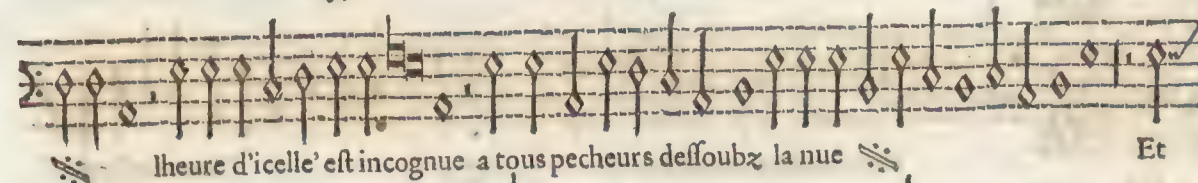 lheure d'icelle' eſt incognue a tous pecheurs deſſoubz la nue Et